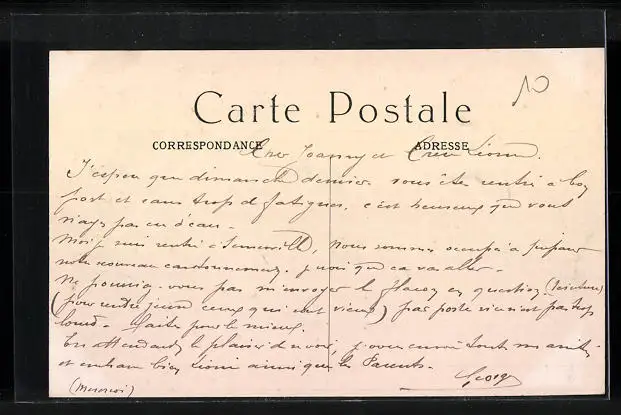 10
Carte Postale
CORRESPONDANCE ADRESSE
Cher Joanny et Léonne.
J'espère que dimanche dernier vous êtes rentré à bon
port et sans trop de fatigues, c'est heureux que vous
n'ayez pas eu d'eau.
Moi je suis rentré à, nous sommes occupés à préparer
notre nouveau cantonnement. je vois que ça va aller.
Ne pourriez-vous pas m'envoyer le flacon en question (teinture)
(pour rendre jeune ceux qui sont vieux) par poste si ce n'est pas trop
lourd. faites pour le mieux.
En attendant le plaisir de vous voir, je vous envoie toute mes amitiés
et embrasse bien Léonne ainsi que les Parents.
Georges
(Mercredi)